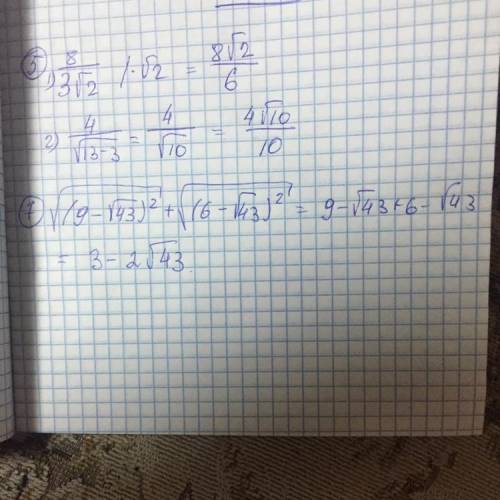 ⑤ 1) 8/(3√2) | · √2 = 8√2/6
2) 4/√(13-3) = 4/√10 = 4√10/10
⑦ √((9-√43)²) + √((6-√43)²) = 9-√43+6-√43
= 3-2√43